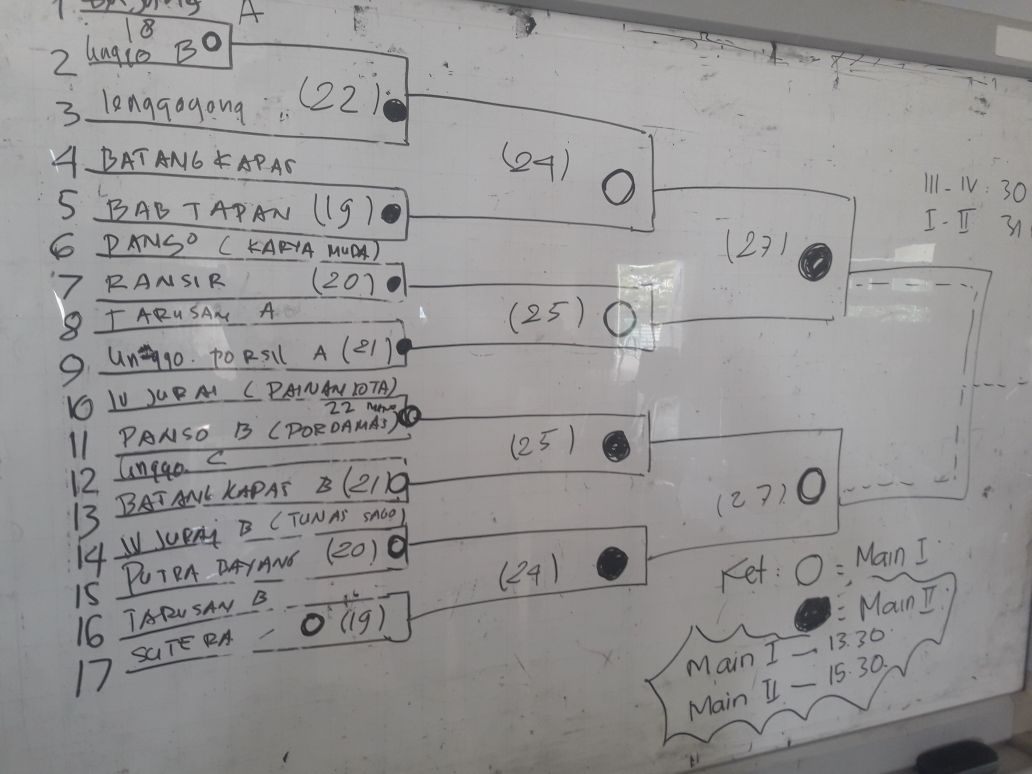 1 A
18
2 Unggo B
3 lenggogong (22)
4 BATANG KAPAS
5 BAB TAPAN (19)
6 PANSO (KARYA MUDA)
7 RANSIR (20)
8 TARUSAN A
9 Unggo. PORSIL A (21)
10 IV JURAI (PAINAN KOTA)
22
11 PANSO B (PORDAMAS)
12 Unggo C
13 BATANG KAPAS B (21)
14 IV JURAI B (TUNAS SAGO)
15 PUTRA DAYANG (20)
16 TARUSAN B
17 SUTERA (19)
(24)
(25)
(25)
(24)
(27)
(27)
III - IV : 30
I - II 31
Ket : = Main I
= Main II
Main I — 13.30
Main II — 15.30